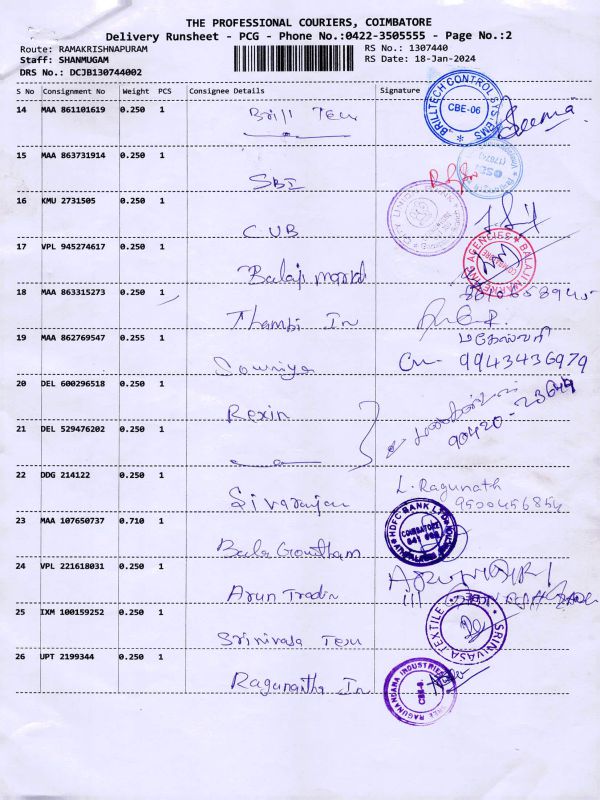 THE PROFESSIONAL COURIERS, COIMBATORE
Delivery Runsheet - PCG - Phone No.:0422-3505555 - Page No.:2
Route: RAMAKRISHNAPURAM RS No.: 1307440
Staff: SHANMUGAM RS Date: 18-Jan-2024
DRS No.: DCJB130744002
S No Consignment No Weight PCS Consignee Details Signature
14 MAA 861101619 0.250 1 Brill Tech
BRILLTECH CONTROL SYSTEMS CBE-06
15 MAA 863731914 0.250 1 SBI
16 KMU 2731505 0.250 1 CUB
17 VPL 945274617 0.250 1 Balaji
BALAJI MARKETING AGENCIES
18 MAA 863315273 0.250 1 Thambi In
19 MAA 862769547 0.255 1 Sowriya
மகேஸ்வரி
9943436979
20 DEL 600296518 0.250 1 Rexin
21 DEL 529476202 0.250 1
90420-23649
22 DDG 214122 0.250 1 Sivaranjan
L. Ragunath
9500456854
23 MAA 107650737 0.710 1 Bala Gowtham
HDFC BANK LTD COIMBATORE
24 VPL 221618031 0.250 1 Arun Tradin
25 IXM 100159252 0.250 1 Srinivasa Tex
SRINIVASA TEXTILE
26 UPT 2199344 0.250 1 Ragunantha In
SHREE RAGUNANDANA INDUSTRIES CBE-6.